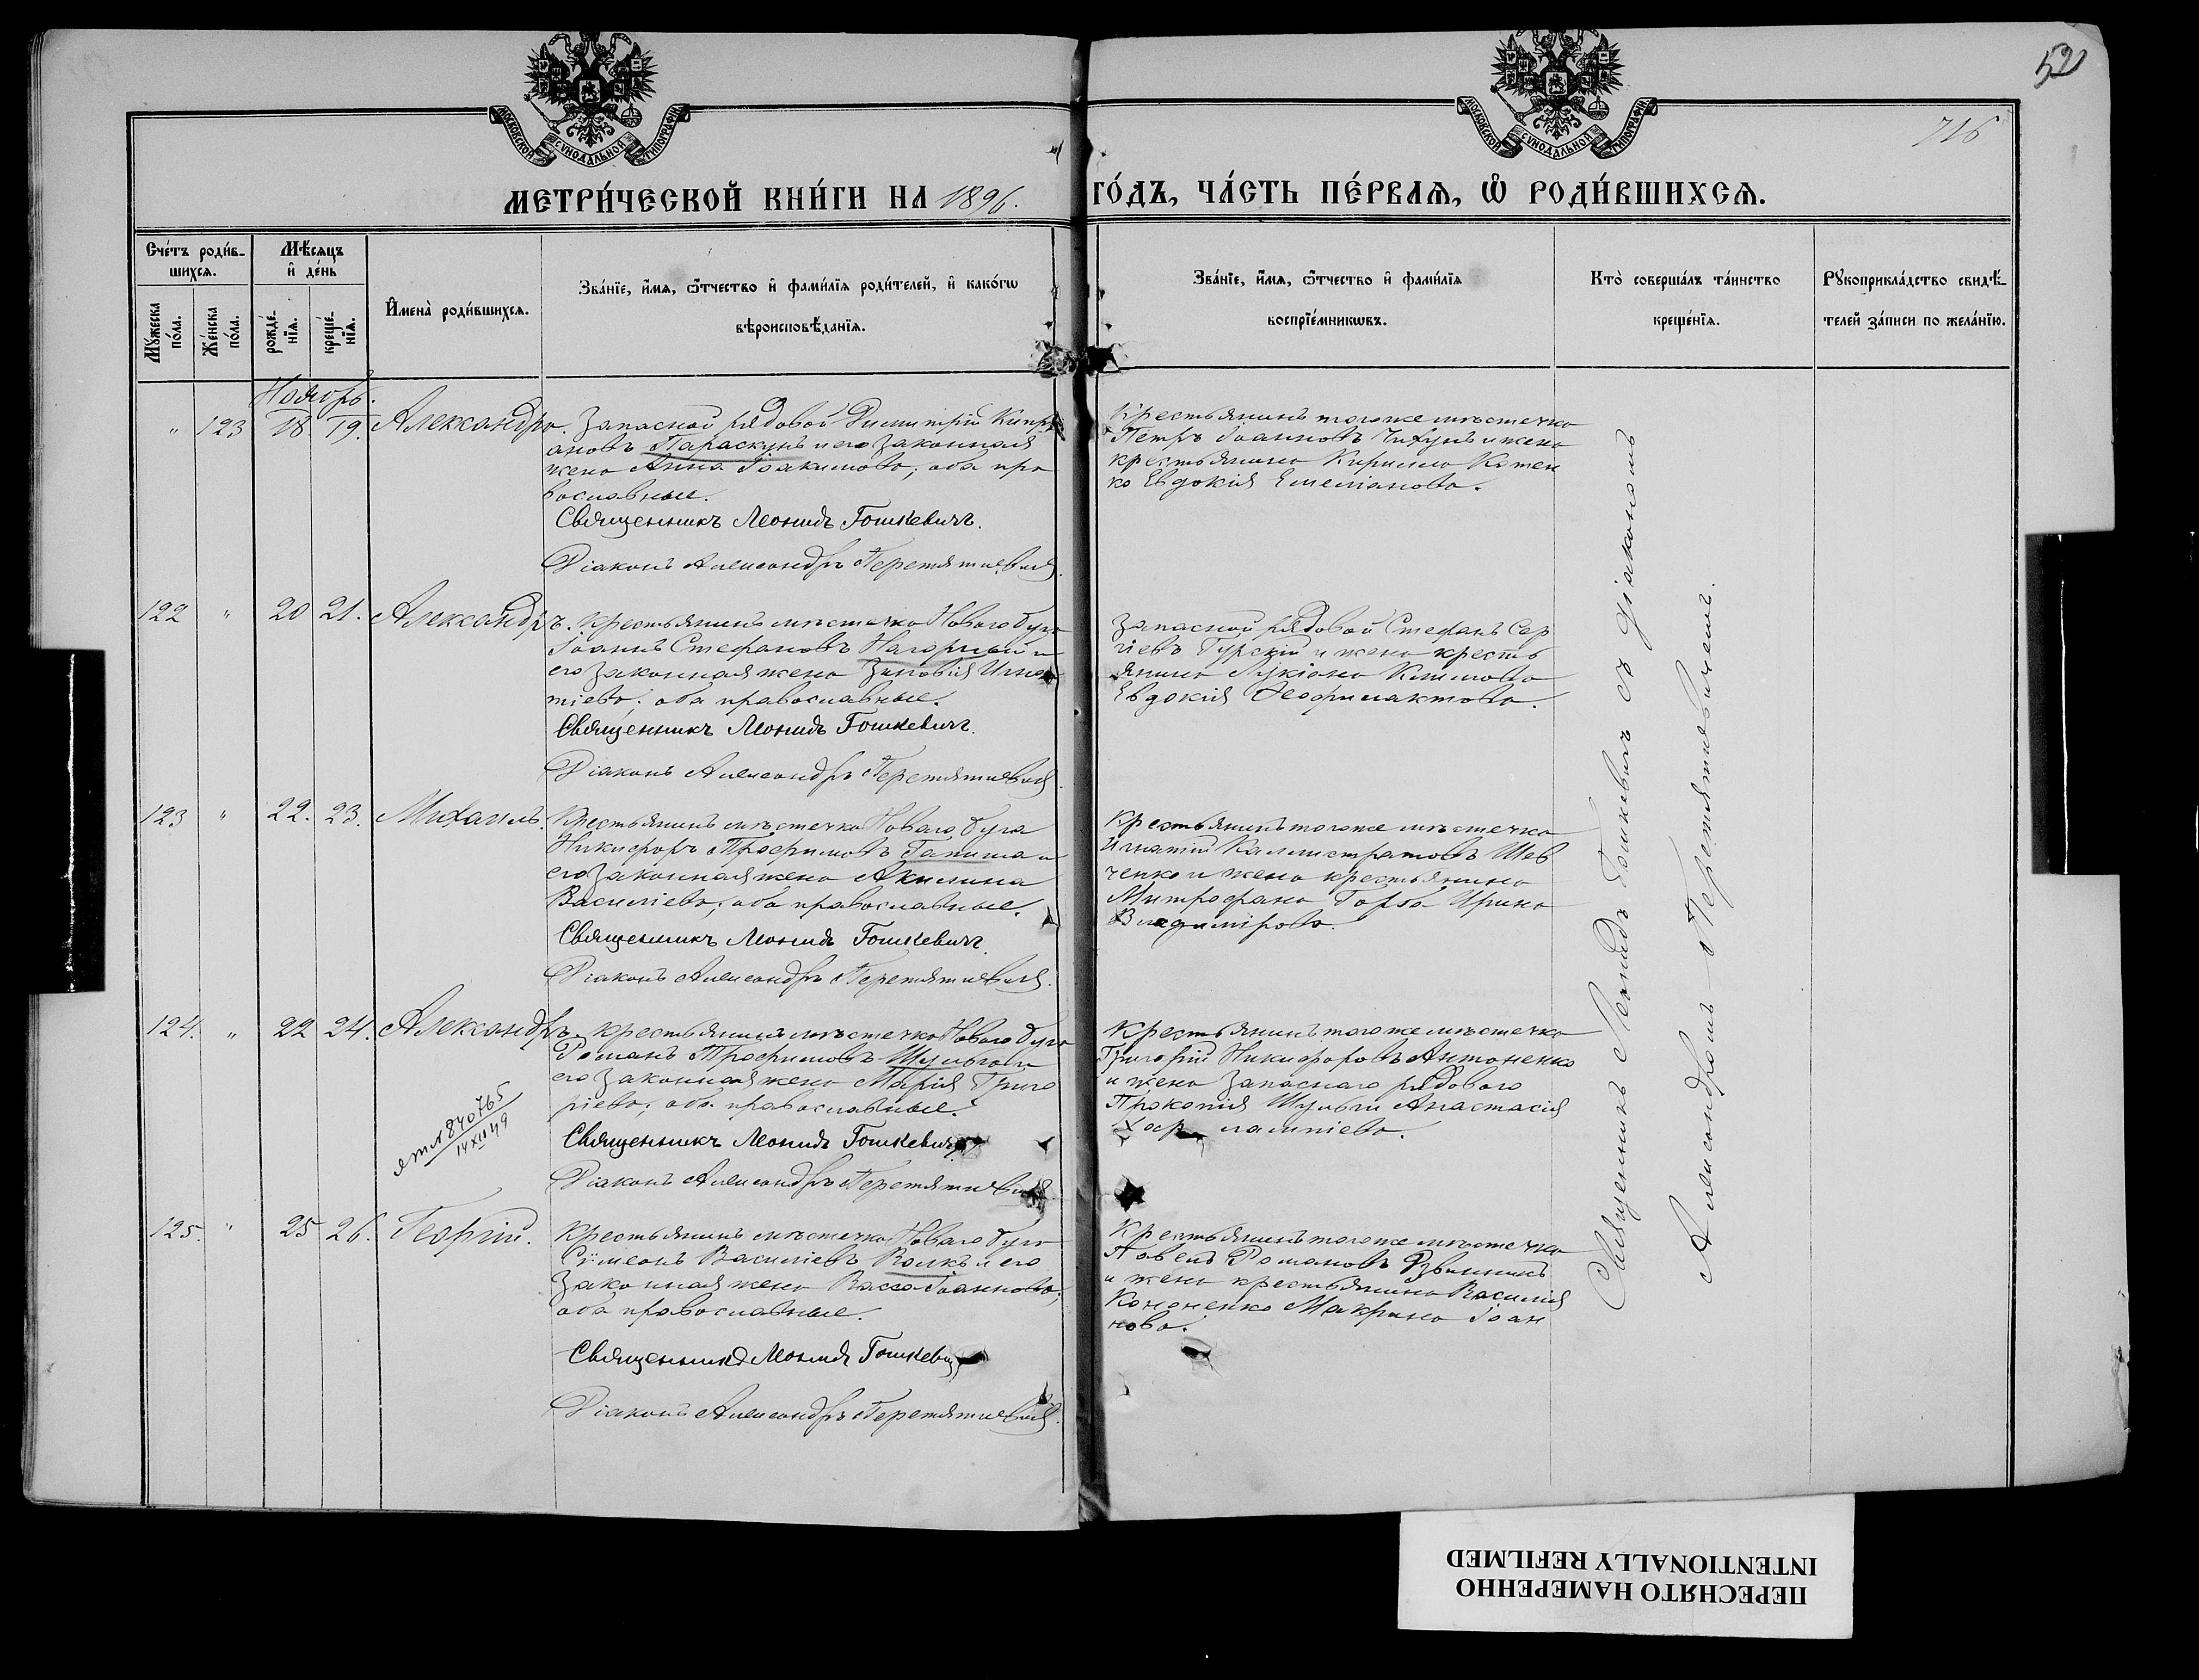 52
716
МОСКОВСКОЙ СѴНОДАЛЬНОЙ ТИПОГРАФІИ
МОСКОВСКОЙ СѴНОДАЛЬНОЙ ТИПОГРАФІИ
МЕТРИ́ЧЕСКОЙ КНИ́ГИ НА 1896. ГО́ДЪ, ЧА́СТЬ ПЕ́РВАѦ, Ѡ҆ РОДИ́ВШИХСѦ.
Сче́тъ роди́в-
шихсѧ.
Мꙋ́жеска по́ла.
Же́нска по́ла.
Мѣ́сѧцъ и҆ де́нь
рожде́-нїѧ.
креще́-нїѧ.
И҆мена̀ роди́вшихсѧ.
Зва́нїе, и҆́мѧ, ѻ҆́тчество и҆ фами́лїѧ роди́телей, и҆ како́гѡ
вѣроисповѣ́данїѧ.
Зва́нїе, и҆́мѧ, ѻ҆́тчество и҆ фами́лїѧ
воспрїе́мникѡвъ.
Кто̀ соверша́лъ та́инство
креще́нїѧ.
Рꙋкоприкла́дство свидѣ́-
телей за́писи по жела́нїю.
Ноябрь.
" 123 18. 19. Александра. Запасной рядовой Димитрій Кипрі
ановъ Параскунъ и его законная
жена Анна Іоакимова; оба пра
вославные.
Священникъ Леонидъ Гошкевичъ.
Діаконъ Александръ Перетятковичъ.
Крестьянинъ тогоже мѣстечка
Петръ Іоанновъ Чихунъ и жена
крестьянина Кирилла Котен
ко Евдокія Емеліанова.
122 " 20 21. Александръ. Крестьянинъ мѣстечка Новаго Буга
Іоаннъ Стефановъ Нагорный и
его законная жена Зиновія Игна
тіева; оба православные.
Священникъ Леонидъ Гошкевичъ.
Діаконъ Александръ
Запасной рядовой Стефанъ Сер
гіевъ Гурскій и жена кресть
янина Лукіана Климова
Евдокія Феофилактова.
123 " 22. 23. Михаилъ. Крестьянинъ мѣстечка Новаго Буга
Никифоръ Трофимовъ и
его законная жена Акилина
Василіева; оба православные.
Священникъ Леонидъ Гошкевичъ
Діаконъ Александръ
Крестьянинъ тогоже мѣстечка
Игнатій Каллистратовъ Шев
ченко и жена крестьянина
Митрофана Горба Ирина
Владимірова.
124. " 22 24. Александръ. Крестьянинъ мѣстечка Новаго Буга
Романъ Трофимовъ Шульга и
его законная жена Марія Григо
ріева; оба православные.
Священникъ Леонидъ Гошкевичъ
Діаконъ Александръ
840765
14 XII 49
Крестьянинъ тогоже мѣстечка
Григорій Никифоровъ Антоненко
и жена запаснаго рядоваго
Прокопія Шульги Анастасія
Харлампіева.
125. " 25 26. Георгій. Крестьянинъ мѣстечка Новаго Буга
Сѵмеонъ Василіевъ Волкъ и его
законная жена Васса Іоаннова;
оба православные.
Священникъ Леонидъ Гошкевичъ
Діаконъ Александръ
Крестьянинъ тогоже мѣстечка
Павелъ Романовъ
и жена крестьянина Василія
Кононенко Макрина Іоан
нова.
Священникъ Леонидъ Гошкевичъ съ діакономъ
Александромъ Перетятковичемъ.
ПЕРЕСНЯТО НАМЕРЕННО
INTENTIONALLY REFILMED